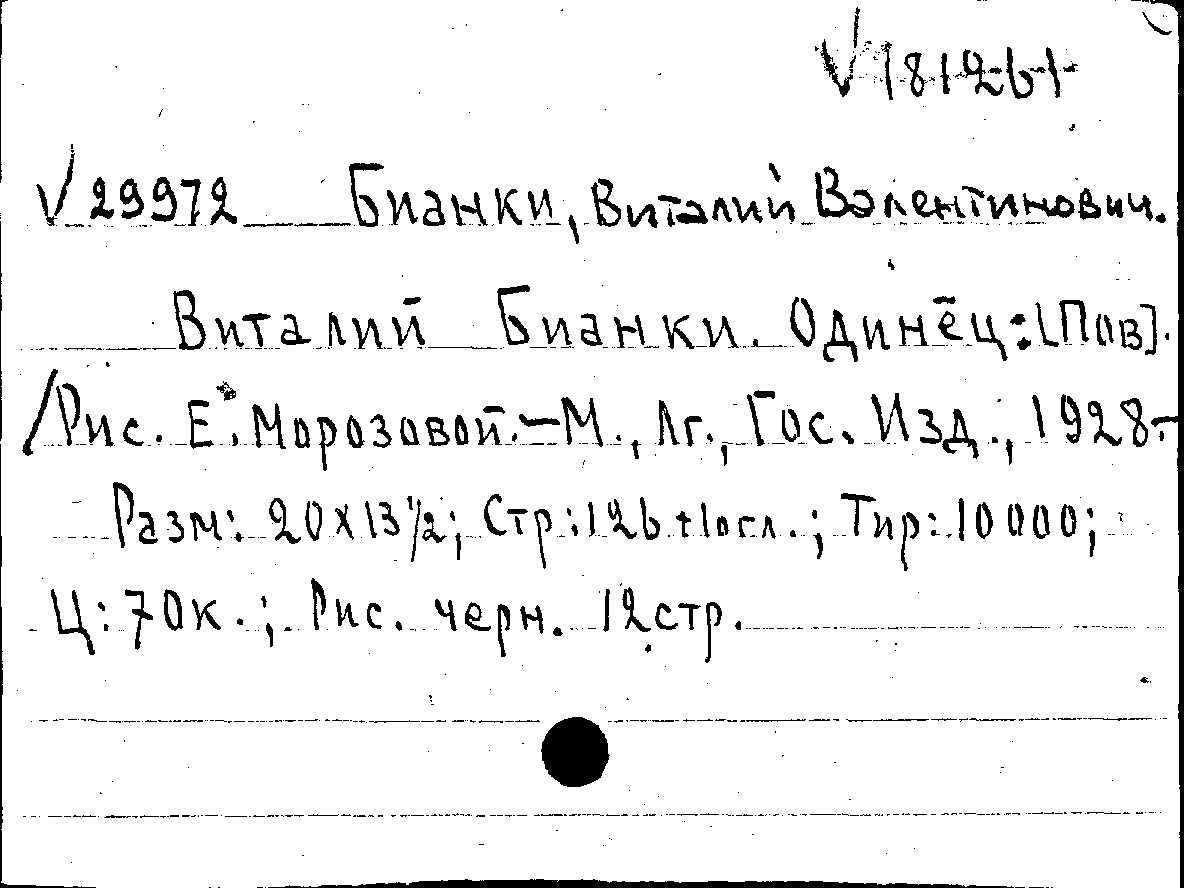 V 181261
V 29972 Бианки, Виталий Валентинович.
Виталий Бианки. Одинец: [Пов].
/Рис. Е. Морозовой. – М., Лг., Гос. Изд., 1928. –
Разм: 20 x 13 1/2; Стр: 126 + 1 огл.; Тир: 10000;
Ц: 70к.; Рис. черн. 12 стр.